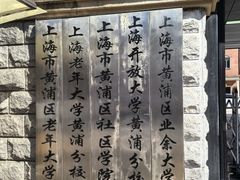 上海市黄浦区业余大学
上海开放大学黄浦分校
上海市黄浦区社区学院
上海老年大学黄浦分校
上海市黄浦区老年大学